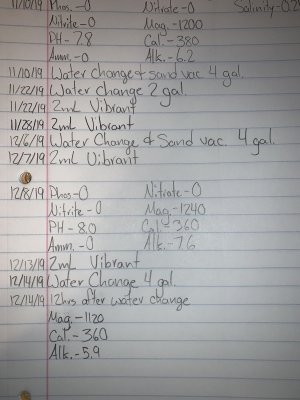 11/10/19 Phos.-0 Nitrate-0 Salinity-0.2
Nitrite-0 Mag.-1200
PH-7.8 Cal.-380
Amm.-0 Alk.-6.2
11/10/19 Water Change & sand vac. 4 gal.
11/22/19 Water Change 2 gal.
11/22/19 2mL Vibrant
11/28/19 2mL Vibrant
12/6/19 Water Change & Sand vac. 4 gal.
12/7/19 2mL Vibrant
12/8/19 Phos-0 Nitrate-0
Nitrite-0 Mag.-1240
PH-8.0 Cal-360
Amm.-0 Alk.-7.6
12/13/19 2mL Vibrant
12/14/19 Water Change 4 gal.
12/14/19 12hrs after water change
Mag.-1120
Cal.-360
Alk.-5.9